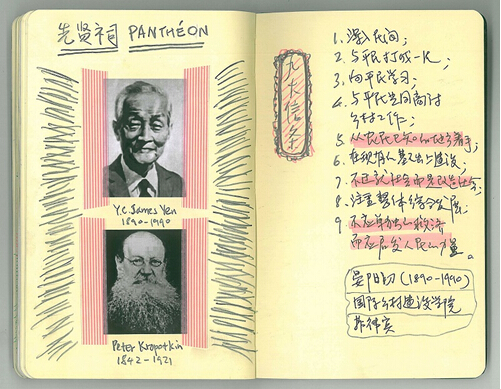 先贤祠 PANTHÉON
Y.C. James Yen
1890-1990
Peter Kropotkin
1842-1921
九大信条
1. 深入民间;
2. 与平民打成一片;
3. 向平民学习;
4. 与平民共同商讨
乡村工作;
5. 从农民已知的地方着手;
6. 在基础上建设;
7. 不迁就社会而是改造社会;
8. 注重整体的综合发展;
9. 不应单独的救济
而应启发人民的力量。
晏阳初 (1890-1990)
国际乡村建设学院
菲律宾